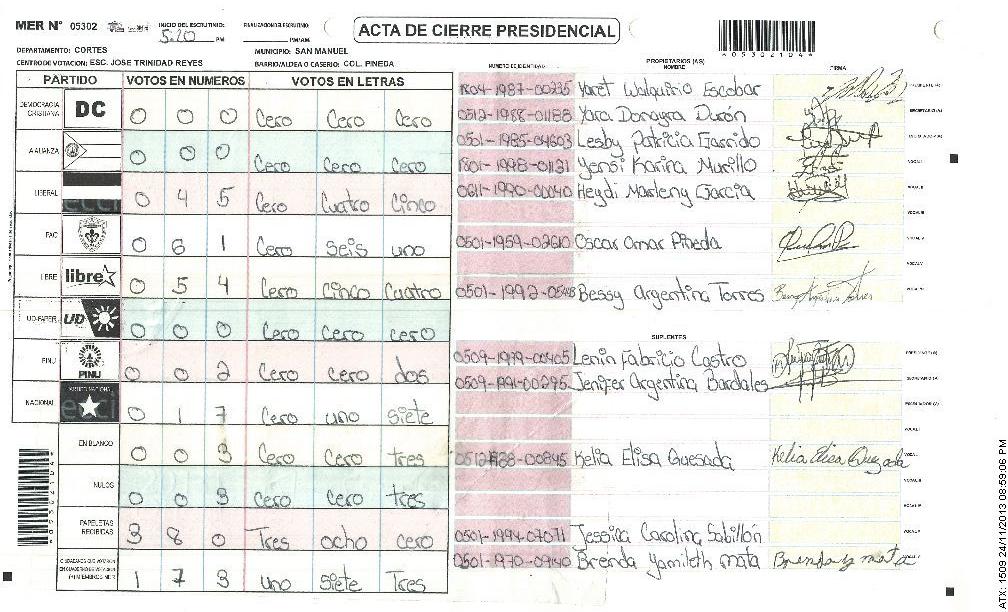 MER N° 05302
INICIO DEL ESCRUTINIO: 5:20 PM
FINALIZACION DEL ESCRUTINIO: PM/AM
ACTA DE CIERRE PRESIDENCIAL
053021041
DEPARTAMENTO: CORTES
MUNICIPIO: SAN MANUEL
CENTRO DE VOTACION: ESC. JOSE TRINIDAD REYES
BARRIO/ALDEA O CASERIO: COL. PINEDA
PARTIDO VOTOS EN NUMEROS VOTOS EN LETRAS
DEMOCRACIA CRISTIANA DC 0 0 0 Cero Cero Cero
ALIANZA 0 0 0 Cero Cero Cero
LIBERAL 0 4 5 Cero Cuatro Cinco
PAC 0 6 1 Cero seis uno
LIBRE libre 0 5 4 Cero Cinco Cuatro
UD-FAPER UD 0 0 0 Cero Cero cero
PINU PINU 0 0 2 Cero cero dos
NACIONAL 0 1 7 Cero uno siete
EN BLANCO 0 0 3 Cero Cero tres
NULOS 0 0 3 Cero Cero tres
PAPELETAS RECIBIDAS 3 8 0 Tres ocho cero
1 7 3 uno siete Tres
NUMERO DE IDENTIDAD
PROPIETARIOS (AS)
NOMBRE
FIRMA
1804-1987-00235 Yaret Walquirio Escobar
0512-1988-01188 Yara Donayra Durón
0501-1985-04603 Lesby Patricia Garrido
1801-1998-01131 Yensi Karina Murillo
0611-1990-00040 Heydi Marleny Garcia
0501-1959-02610 Oscar Omar Pineda
Bessy Argentina Torres
SUPLENTES
0509-1979-00405 Lenin Fabricio Castro
0509-1991-00295 Jenifer Argentina Bardales
Kelia Elisa Quesada Kelia Elisa Quezada
0501-1994-07071 Jessica Carolina Sabillón
0501-1970-00940 Brenda Yamileth Mata
ATX: 1509 24/11/2013 08:59:06 PM